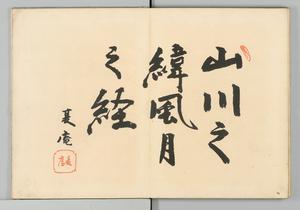 山川之
緯風月
之経